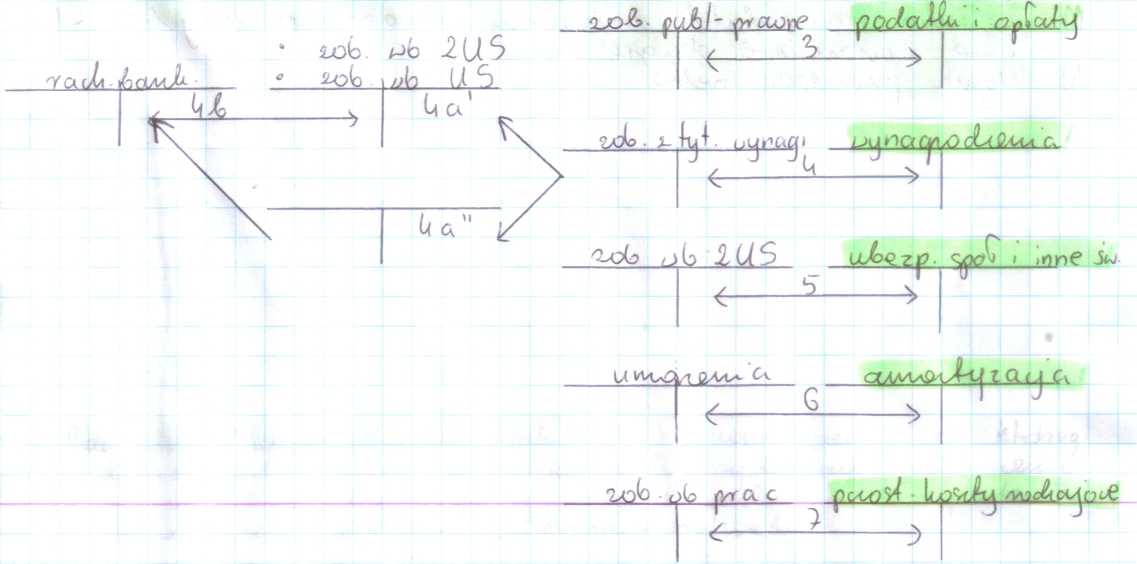 zob. publ-prawne podatki i opłaty
3
• zob. wb ZUS
rach. bank. • zob. wb US
4b 4a'
zob. z tyt. wynagr. wynagrodzenia
4
4a"
zob. wb ZUS ubezp. społ i inne św.
5
umorzenia amortyzacja
6
zob. wb prac pozost. koszty rodzajowe
7